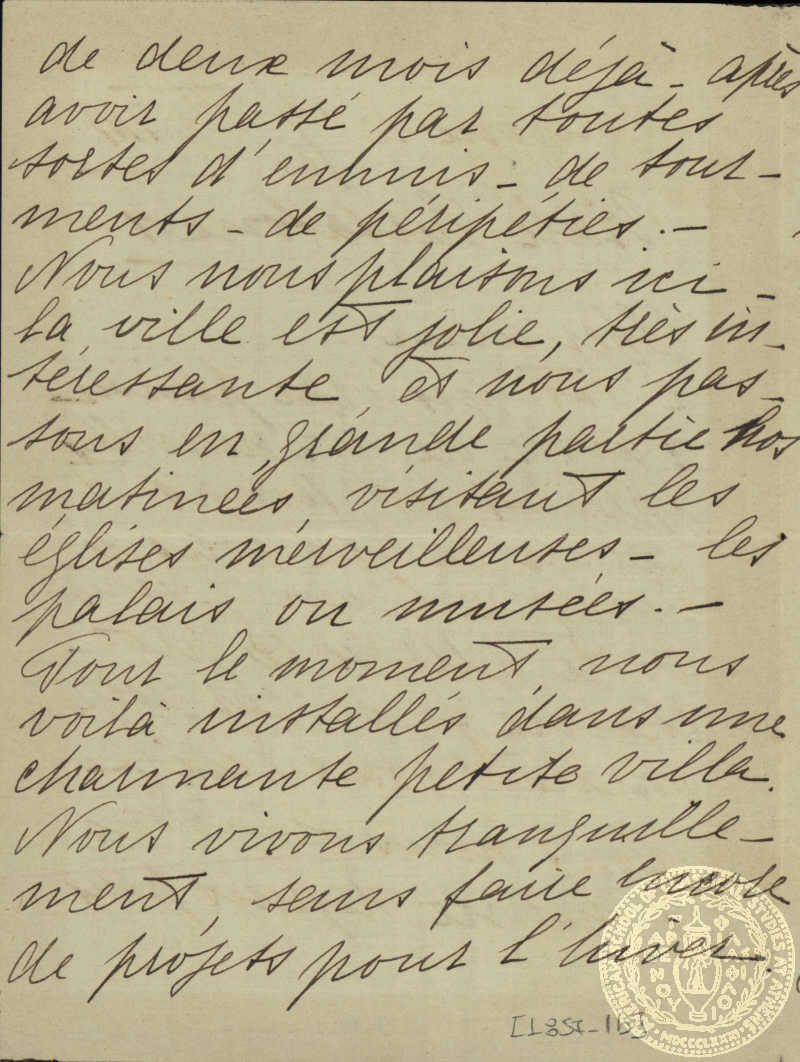 de deux mois déjà - après
avoir passé par toutes
sortes d'ennuis - de tour-
ments - de péripéties. -
Nous nous plaisons ici -
la ville est jolie, très in-
téressante et nous pas-
sons en grande partie nos
matinées visitant les
églises merveilleuses - les
palais ou musées. -
Pour le moment nous
voilà installés dans une
charmante petite villa.
Nous vivons tranquille-
ment, sans faire encore
de projets pour l'hiver.